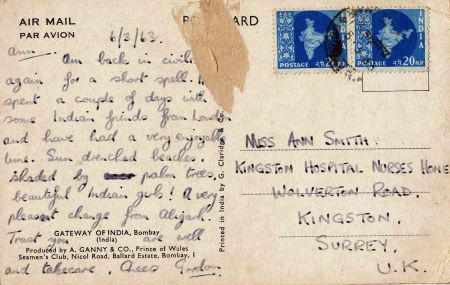 AIR MAIL
PAR AVION
6/3/63.
Ann...
Am back in civili
again for a short spell. I
spent a couple of days with
some Indian friends from London
and have had a very enjoyable
time. Sun drenched beaches,
shaded by palm trees,
beautiful Indian girls! A very
pleasant change from Aligarh.
Trust you are well
and takecare. Cheers Gordon.
GATEWAY OF INDIA, Bombay
(India)
Produced by A. GANNY & CO., Prince of Wales
Seamen's Club, Nicol Road, Ballard Estate, Bombay, I
Printed in India by G. Claridge & Co.
PO CARD
INDIA
POSTAGE 20 N.P.
INDIA
POSTAGE 20 N.P.
MISS ANN SMITH.
KINGSTON HOSPITAL NURSES HOME
WOLVERTON ROAD,
KINGSTON,
SURREY,
U.K.